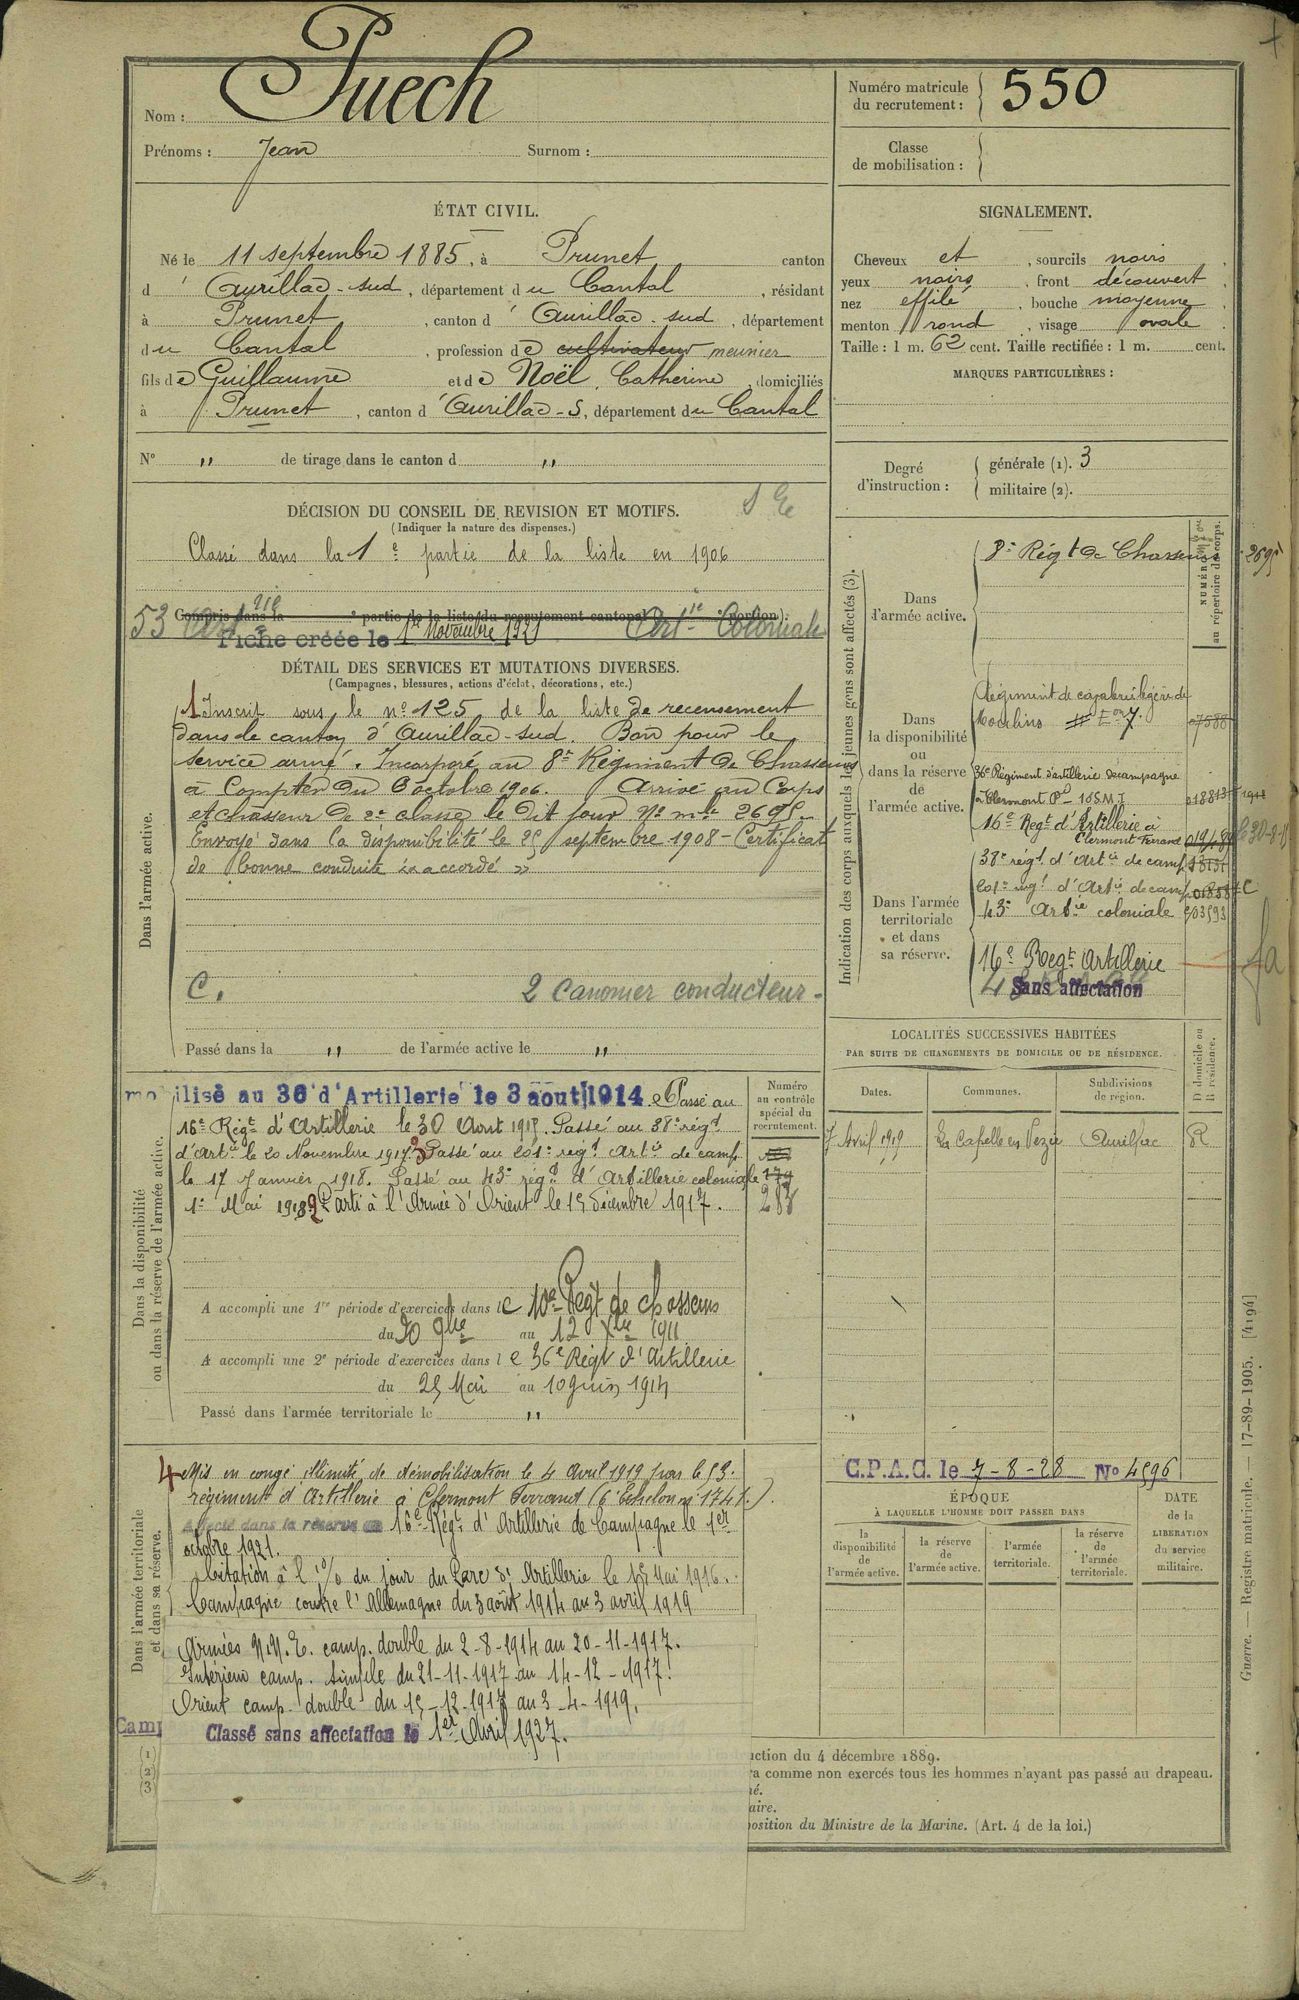 Nom : Puech
Prénoms : Jean Surnom :
Numéro matricule du recrutement : 550
Classe de mobilisation :
ÉTAT CIVIL.
Né le 11 septembre 1885, à Prunet canton
d' Aurillac-sud, département du Cantal, résidant
à Prunet, canton d' Aurillac-sud, département
du Cantal, profession de cultivateur meunier
fils de Guillaume et de Noël, Catherine, domiciliés
à Prunet, canton d' Aurillac-S, département du Cantal
N° " de tirage dans le canton d "
SIGNALEMENT.
Cheveux et, sourcils noirs,
yeux noirs, front découvert,
nez effilé, bouche moyenne,
menton rond, visage ovale.
Taille : 1 m. 62 cent. Taille rectifiée : 1 m. cent.
MARQUES PARTICULIÈRES :
Degré d'instruction : générale (1). 3
militaire (2).
DÉCISION DU CONSEIL DE REVISION ET MOTIFS.
(Indiquer la nature des dispenses.)
Classé dans la 1e partie de la liste en 1906
Compris dans la e partie de la liste du recrutement cantonal ( e portion).
53 Art
Artie Coloniale
Fiche créée le 1er Novembre 1921
DÉTAIL DES SERVICES ET MUTATIONS DIVERSES.
(Campagnes, blessures, actions d'éclat, décorations, etc.)
Dans l'armée active.
1 Inscrit sous le n° 125 de la liste de recensement
dans le canton d'Aurillac-sud. Bon pour le
service armé. Incorporé au 8e Régiment de Chasseurs
à compter du 6 octobre 1906. Arrivé au Corps
et chasseur de 2e classe le dit jour No mle 2695.
Envoyé dans la disponibilité le 25 septembre 1908 - Certificat
de bonne conduite "accordé"
C. 2 canonier conducteur.
Passé dans la " de l'armée active le "
Indication des corps auxquels les jeunes gens sont affectés (3).
NUMÉRO au répertoire du corps.
Dans l'armée active.
8e Régt de Chasseurs 2695
Dans la disponibilité ou dans la réserve de l'armée active.
Régiment de cavalerie légère de
Moulins
36e Régiment d'artillerie de campagne
à Clermont Fd
16e Regt d'Artillerie à
Clermont Ferrand
Dans l'armée territoriale et dans sa réserve.
38e régt d'Artie de camp
201e régt d'Artie de camp
43e Artie coloniale
16e Regt Artillerie
Sans affectation
LOCALITÉS SUCCESSIVES HABITÉES
PAR SUITE DE CHANGEMENTS DE DOMICILE OU DE RÉSIDENCE.
Dates. Communes. Subdivisions de région. D domicile ou R résidence.
7 Avril 1919 La Capelle en Vezie Aurillac R
Dans la disponibilité ou dans la réserve de l'armée active.
Numéro au contrôle spécial du recrutement.
mobilisé au 36 d'Artillerie le 3 aout 1914. Passé au
16e Régt d'Artillerie le 30 Avril 1915. Passé au 38e régt
d'Artie le 20 Novembre 1917. 3 Passé au 201e régt Artie de camp.
le 17 Janvier 1918. Passé au 43e régt d'Artillerie coloniale
1er Mai 1918. 2 Parti à l'Armée d'Orient le 15 décembre 1917.
A accompli une 1re période d'exercices dans le 10e Regt de chasseurs
du 20 9bre au 12 Xbre 1911
A accompli une 2e période d'exercices dans le 36e Régt d'Artillerie
du 25 Mai au 10 Juin 1914
Passé dans l'armée territoriale le "
Dans l'armée territoriale et dans sa réserve.
4 Mis en congé illimité de démobilisation le 4 Avril 1919 par le 53e
régiment d'Artillerie à Clermont Ferrand (6e Echelon n° 1741.)
Affecté dans la réserve au 16e Régt d'Artillerie de Campagne le 1er
octobre 1921.
Citation à l'o/o du jour du Parc d'Artillerie le 15 Mai 1916.
Campagne contre l'Allemagne du 3 août 1914 au 3 avril 1919
Armées N.N.E. camp. double du 2-8-1914 au 20-11-1917.
Intérieur camp. simple du 21-11-1917 au 14-12-1917.
Orient camp. double du 15-12-1917 au 3-4-1919.
Classé sans affectation le 1er Avril 1927.
Camp
(1)
(2)
(3)
C.P.A.C. le 7-8-28 No 4596
ÉPOQUE
À LAQUELLE L'HOMME DOIT PASSER DANS
la disponibilité de l'armée active.
la réserve de l'armée active.
l'armée territoriale.
la réserve de l'armée territoriale.
DATE de la LIBÉRATION du service militaire.
ction du 4 décembre 1889.
a comme non exercés tous les hommes n'ayant pas passé au drapeau.
é.
aire.
position du Ministre de la Marine. (Art. 4 de la loi.)
Guerre. — Registre matricule. — 17-89-1905. [4194]